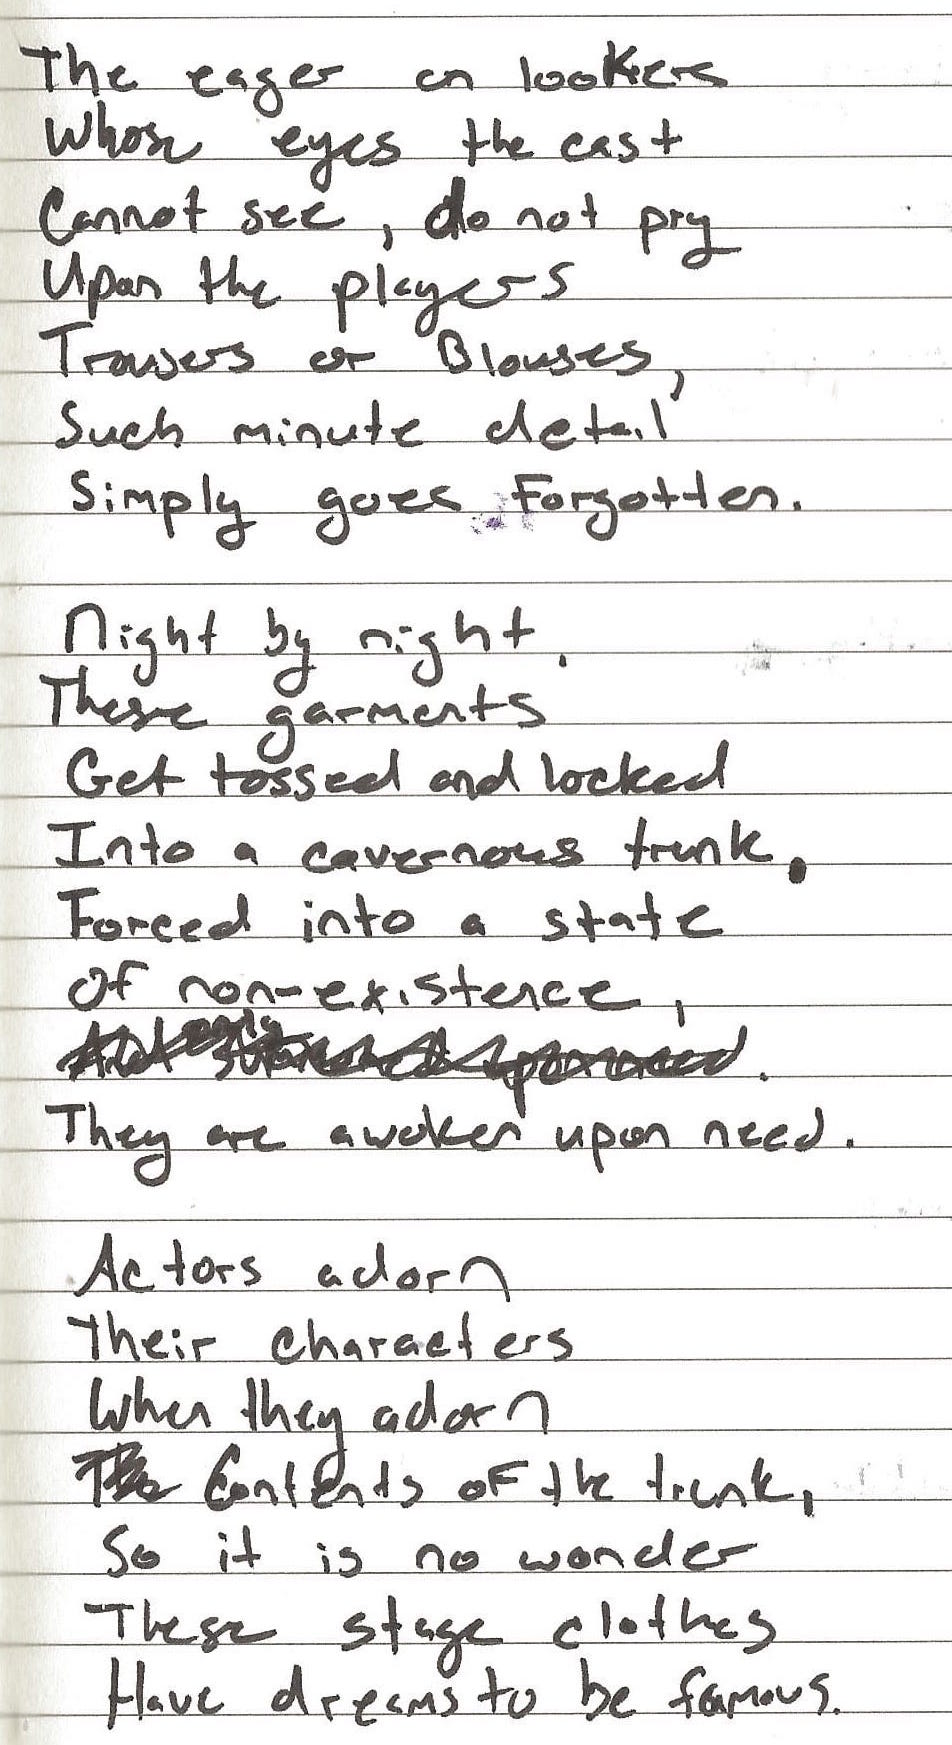 The eager on lookers
Whose eyes the cast
Cannot see, do not pry
Upon the players
Trousers or Blouses,
Such minute detail
Simply goes Forgotten.
Night by night,
These garments
Get tossed and locked
Into a cavernous trunk.
Forced into a state
Of non-existence,
They are awoken upon need.
Actors adorn
Their characters
When they adorn
Contents of the trunk,
So it is no wonder
These stage clothes
Have dreams to be famous.